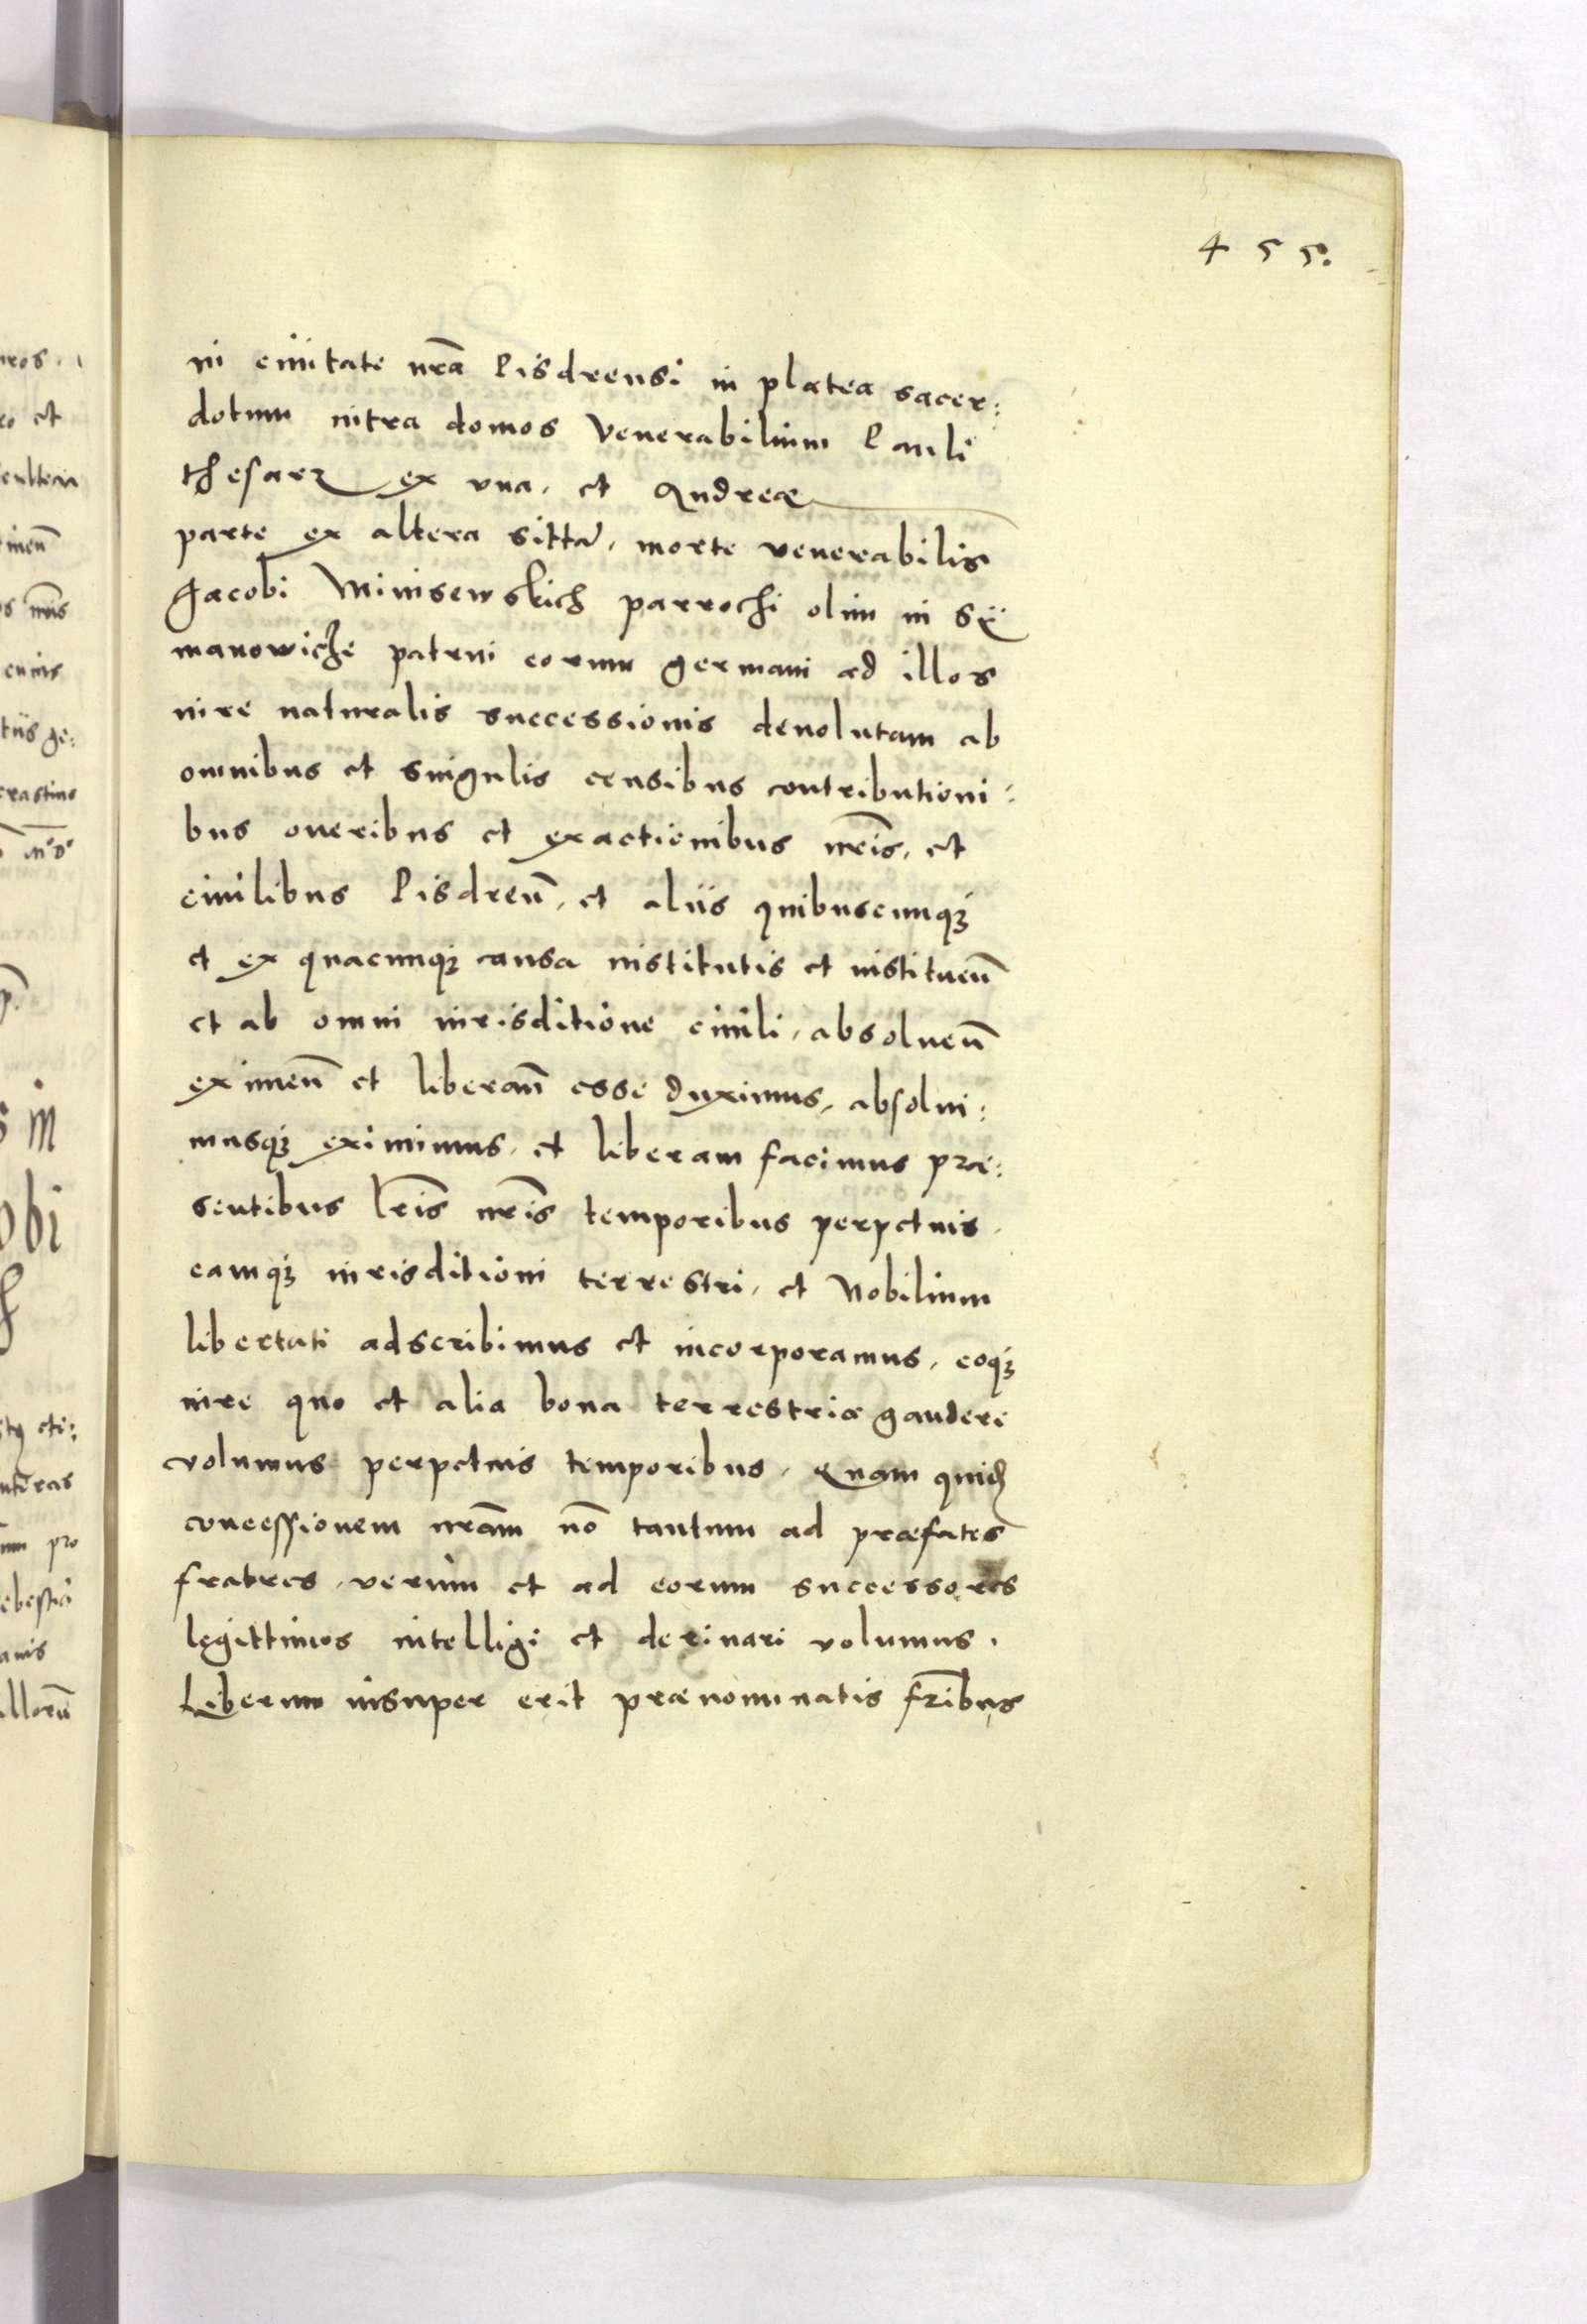 455.
in ciuitate nrã Pisdrensi in platea sacer:
dotum intra domos Venerabilium Pauli
thesarz ex vna, et Andreæ
parte ex altera sittã, morte venerabilis
Jacobi Winisewskich parrochi olim in Sÿ
manowicze patrui eorum germani ad illos
iure naturalis successionis deuolutam ab
omnibus et singulis censibus contributioni:
bus oneribus et exactionibus nr̃is, et
ciuilibus Pisdreñ, et aliis quibuscunqꝫ
et ex quacunqꝫ causa institutis et instituen̄
et ab omni iurisditione ciuili, absoluen̄
eximen̄ et liberan̄ esse duximus, absolui:
musqꝫ eximimus, et liberam facimus præ:
sentibus lr̃is nr̃is temporibus perpetuis,
eamqꝫ iurisditioni terrestri, et Nobilium
libertati adscribimus et incorporamus, eoqꝫ
iure quo et alia bona terrestria gaudere
volumus perpetuis temporibus, Quam quid̃
concessionem nrãm nõ tantum ad præfatos
fratres, verum et ad eorum successores
legittimos intelligi et deriuari volumus.
Liberum insuper erit prænominatis fr̃ibus